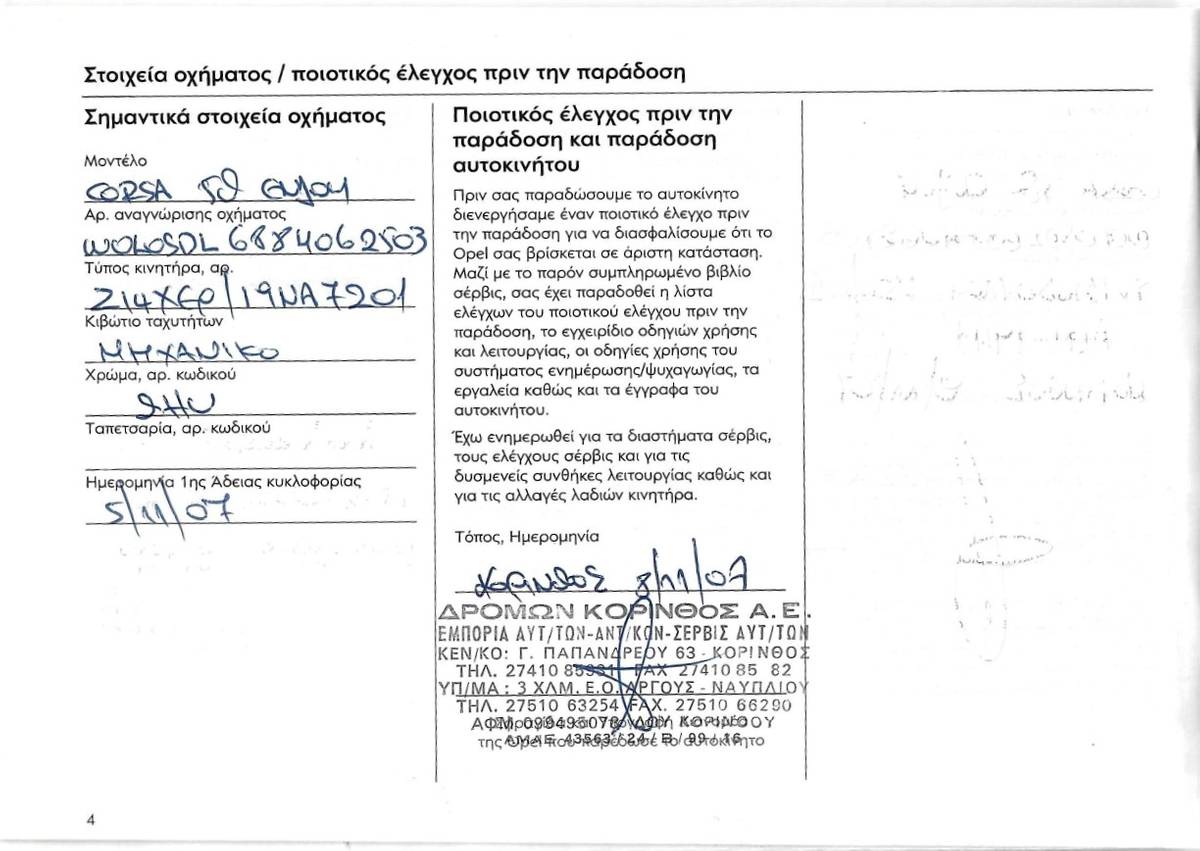 Στοιχεία οχήματος / ποιοτικός έλεγχος πριν την παράδοση
Σημαντικά στοιχεία οχήματος
Μοντέλο
CORSA 5θ ENJOY
Αρ. αναγνώρισης οχήματος
WOLOSDL6884062503
Τύπος κινητήρα, αρ.
Z14XEP/19NA7201
Κιβώτιο ταχυτήτων
ΜΗΧΑΝΙΚΟ
Χρώμα, αρ. κωδικού
Ταπετσαρία, αρ. κωδικού
Ημερομηνία 1ης Άδειας κυκλοφορίας
5/11/07
Ποιοτικός έλεγχος πριν την
παράδοση και παράδοση
αυτοκινήτου
Πριν σας παραδώσουμε το αυτοκίνητο
διενεργήσαμε έναν ποιοτικό έλεγχο πριν
την παράδοση για να διασφαλίσουμε ότι το
Opel σας βρίσκεται σε άριστη κατάσταση.
Μαζί με το παρόν συμπληρωμένο βιβλίο
σέρβις, σας έχει παραδοθεί η λίστα
ελέγχων του ποιοτικού ελέγχου πριν την
παράδοση, το εγχειρίδιο οδηγιών χρήσης
και λειτουργίας, οι οδηγίες χρήσης του
συστήματος ενημέρωσης/ψυχαγωγίας, τα
εργαλεία καθώς και τα έγγραφα του
αυτοκινήτου.
Έχω ενημερωθεί για τα διαστήματα σέρβις,
τους ελέγχους σέρβις και για τις
δυσμενείς συνθήκες λειτουργίας καθώς και
για τις αλλαγές λαδιών κινητήρα.
Τόπος, Ημερομηνία
Κορινθος 8/11/07
ΔΡΟΜΩΝ ΚΟΡΙΝΘΟΣ Α.Ε.
ΕΜΠΟΡΙΑ ΑΥΤ/ΤΩΝ-ΑΝΤ/ΚΩΝ-ΣΕΡΒΙΣ ΑΥΤ/ΤΩΝ
ΚΕΝ/ΚΟ: Γ. ΠΑΠΑΝΔΡΕΟΥ 63 - ΚΟΡΙΝΘΟΣ
ΤΗΛ. 27410 FAX 27410 85 82
ΥΠ/ΜΑ : 3 ΧΛΜ. Ε.Ο. ΑΡΓΟΥΣ - ΝΑΥΠΛΙΟΥ
ΤΗΛ. 27510 63254 FAX. 27510 66290
ΑΦΜ. ΔΟΥ ΚΟΡΙΝΘΟΥ
ΑΜΑΕ 43563 / 24 / Β / 99 / 16
της Opel που παρέδωσε το αυτοκίνητο
4